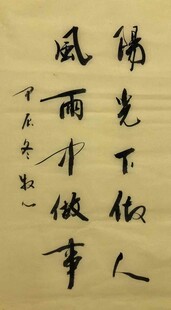 陽光下做人
風雨中做事
甲辰冬牧心